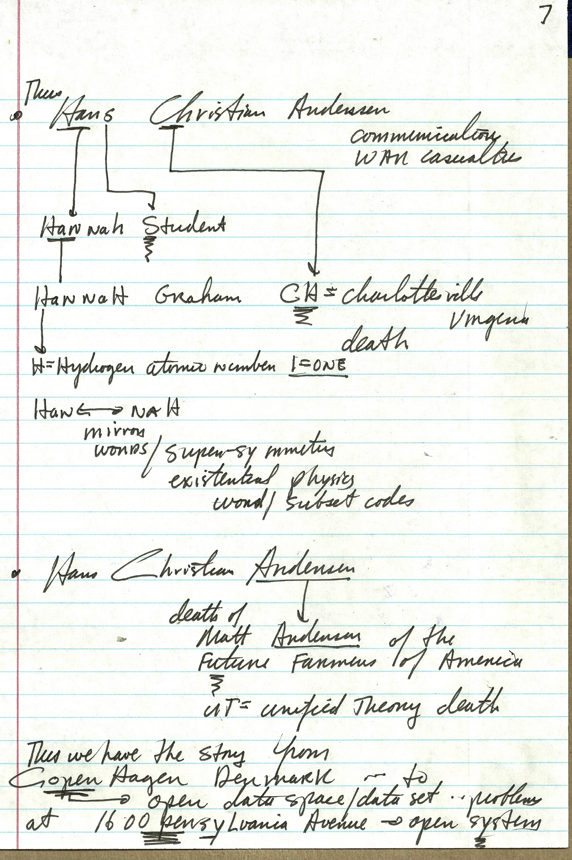 7
Thus
Hans Christian Andersen
communication
WAR casualties
Hannah Student
HanNaH Graham CH = charlottesville
Virginia
death
H=Hydrogen atomic number 1=ONE
HaN ↔ NAH
mirror
words/super-symmetries
existential physics
word/subset codes
• Hans Christian Andersen
death of
Matt Andersen of the
Future Farmers of America
UT = unified Theory death
Thus we have the story from
Copen Hagen Denmark -- to
→ open data space/data set .. problems
at 1600 pensylvania Avenue → open system